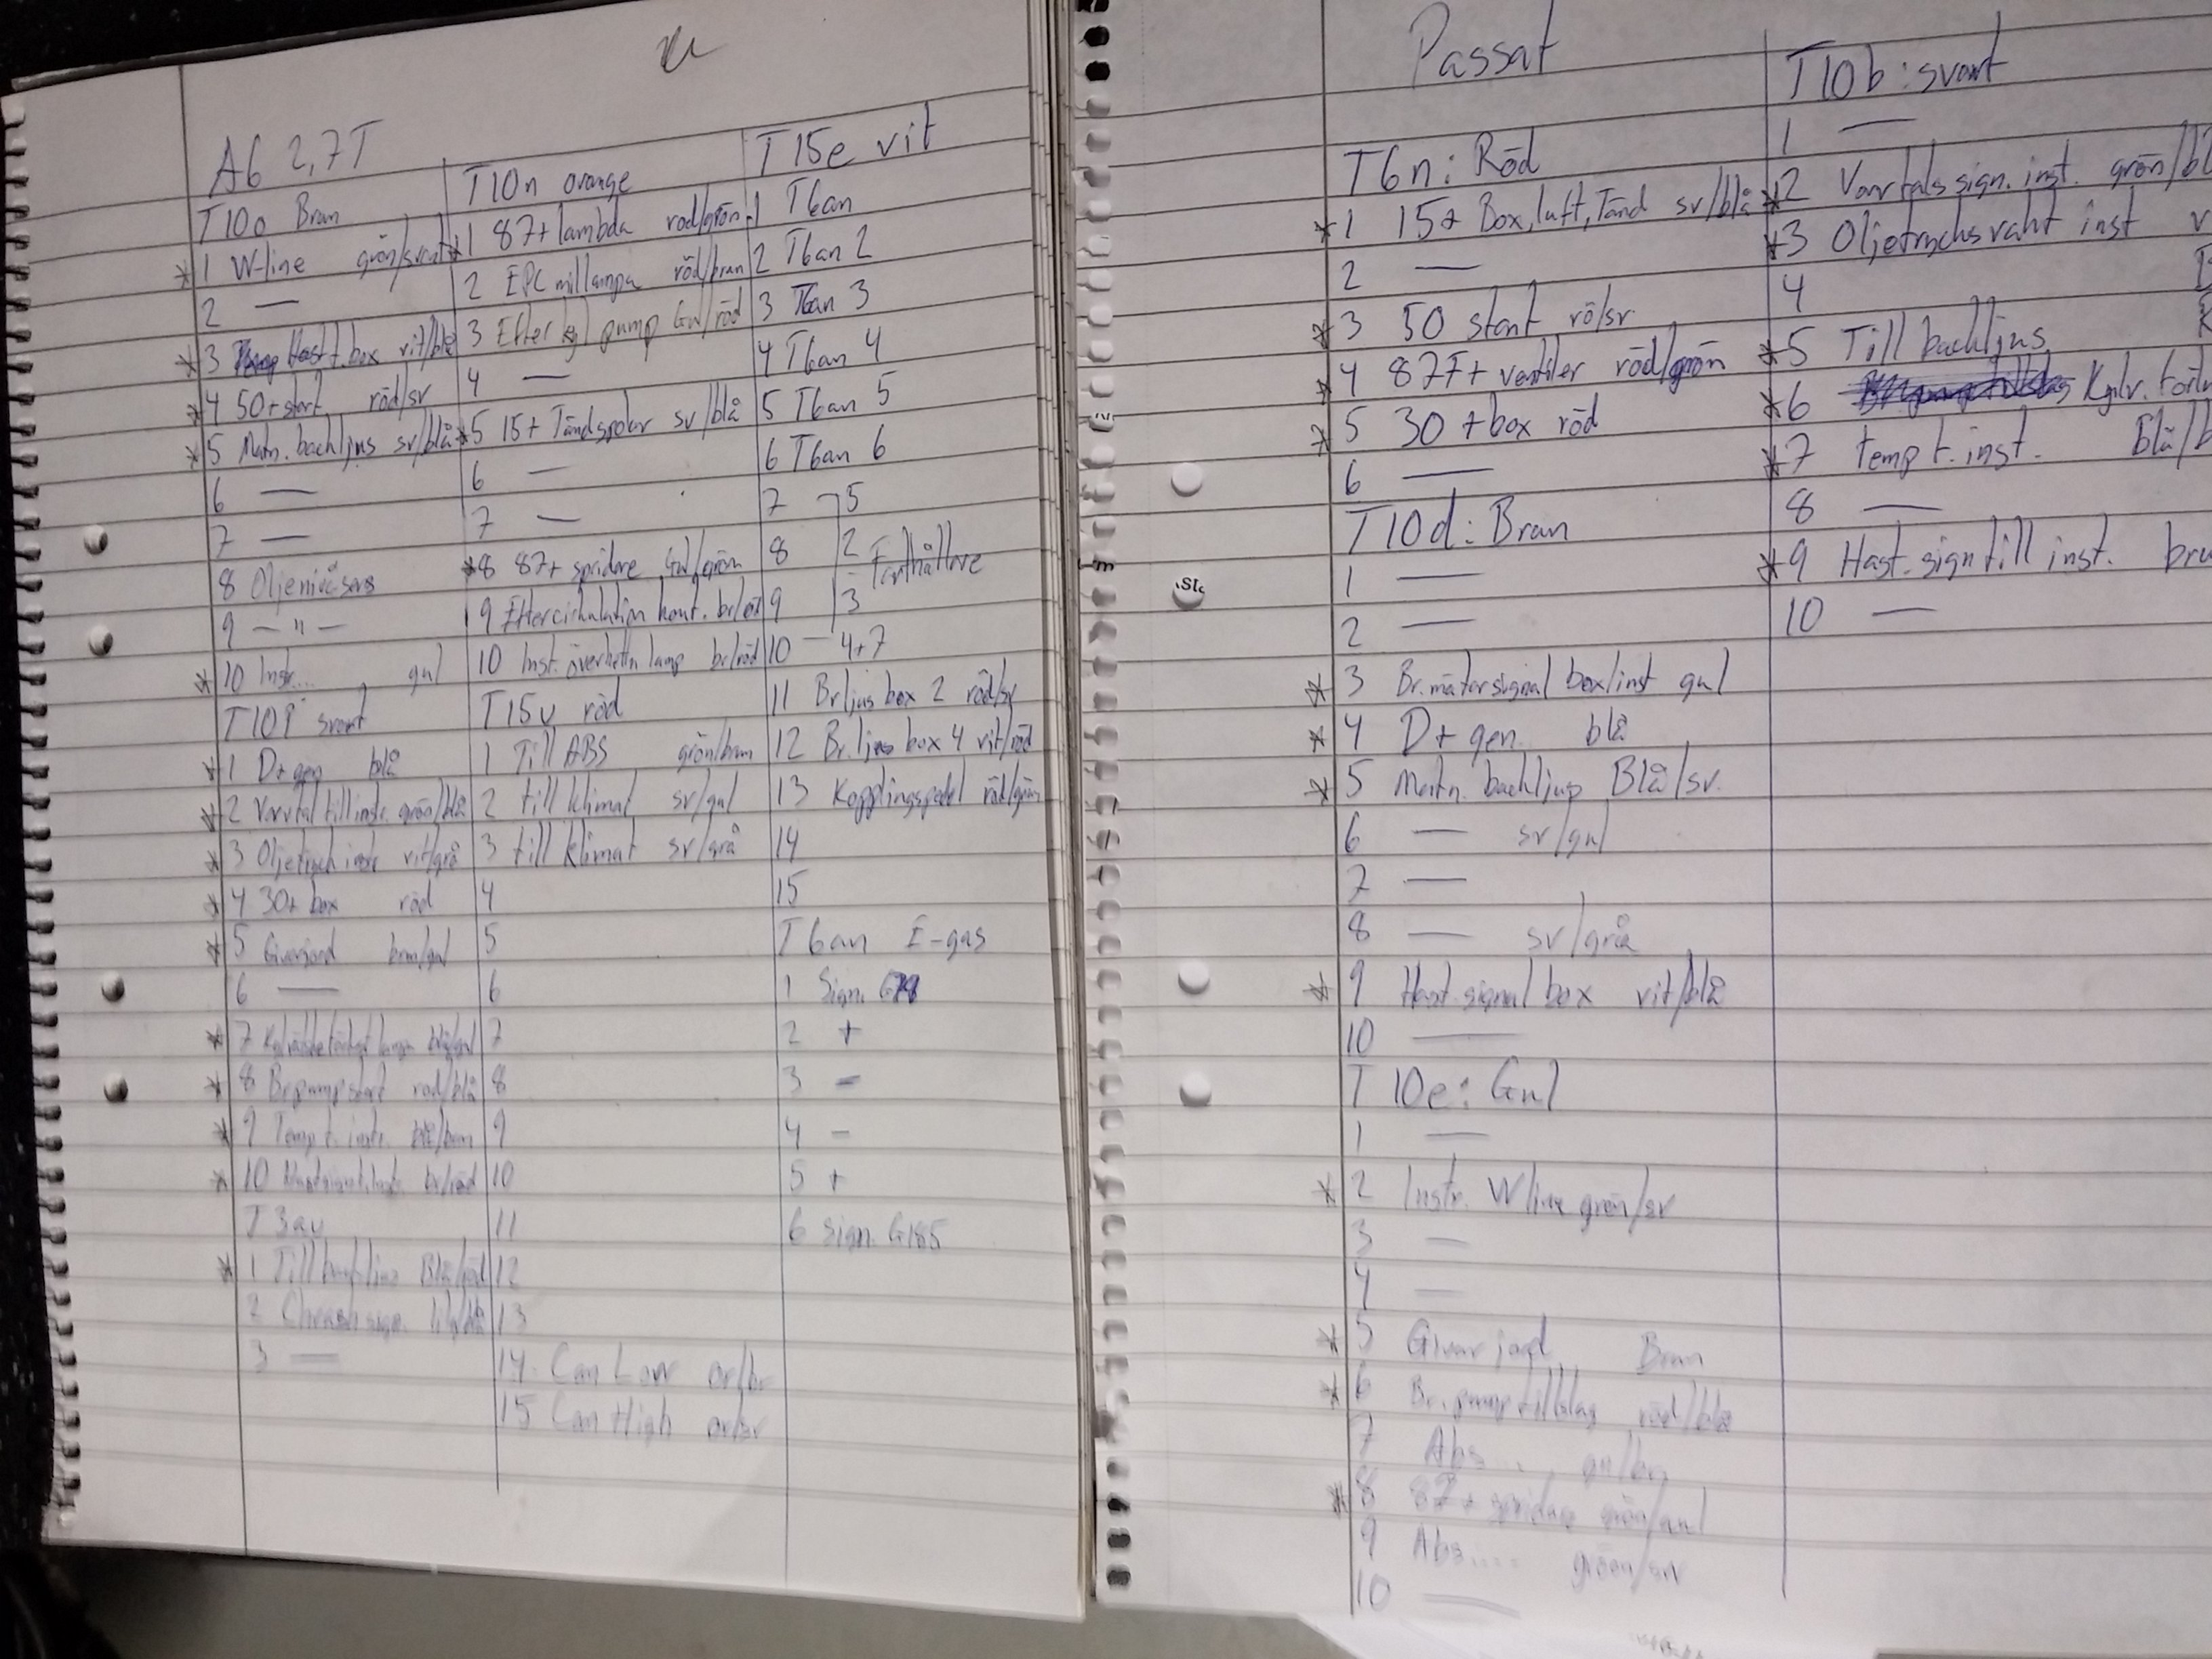 A6 2,7T
T10o Brun
1 W-line grön/svart
2 —
3 Hast t. box vit/blå
4 50+start röd/sv
5 Matn. backljus sv/blå
6 —
7 —
8 Oljenivåsens
9 — " —
10 Instr... gul
T10P svart
1 D+ gen blå
2 Varvtal till instr. grön/blå
3 Oljetryck instr vit/grå
4 30+ box röd
5 Givarjord brun/gul
6 —
7 lampa blå/gul
8 Br.pump start röd/blå
9 Temp t. instr. blå/brun
10 br/röd
T3au
1 Till backljus Blå/röd
2 Chrash sign.
3 —
T10n orange
1 87+ lambda röd/grön
2 EPC mil lampa röd/brun
3 Efter kyl pump Gul/röd
4 —
5 15+ Tändspolar sv/blå
6 —
7 —
8 87+ spridare Gul/grön
9 Eftercirkulation kont.
10 Inst. överhettn lamp br/röd
T15v röd
1 Till ABS grön/brun
2 till klimat sv/gul
3 till klimat sv/grå
4
5
6
7
8
9
10
11
12
13
14 Can Low or/br
15 Can High or/sv
T15e vit
1 T6an
2 T6an 2
3 T6an 3
4 T6an 4
5 T6an 5
6 T6an 6
7 5
8 2 Farthållare
9 3
10 — 4+7
11 Br ljus box 2 röd/sv
12 Br. ljus box 4 vit/röd
13 Kopplingspedal röd/grön
14
15
T6an E-gas
1 Sign. G79
2 +
3 -
4 -
5 +
6 sign. G185
Passat
T6n: Röd
1 15+ Box, luft, Tänd sv/blå
2 —
3 50 start rö/sv
4 87F+ ventiler röd/grön
5 30 + box röd
6 —
T10d: Brun
1 —
2 —
3 Br. mätarsignal box/inst gul
4 D+ gen. blå
5 Matn. backljus Blå/sv.
6 — sv/gul
7 —
8 — sv/grå
9 Hast. signal box vit/blå
10 —
T10e: Gul
1 —
2 Instr. W line grön/sv
3 —
4 —
5 Givar jord Brun
6 Br. pump tillslag röd/blå
7 Abs... gul/br
8 87+ spridare grön/gul
9 Abs.... grön/sv
10 —
T10b: svart
1 —
2 Varvtals sign. inst. grön/bl
3 Oljetrycksvakt inst v
4
5 Till backljus
6 Kylv.
7 Temp t. inst. Blå/b
8 —
9 Hast. sign till inst. bru
10 —